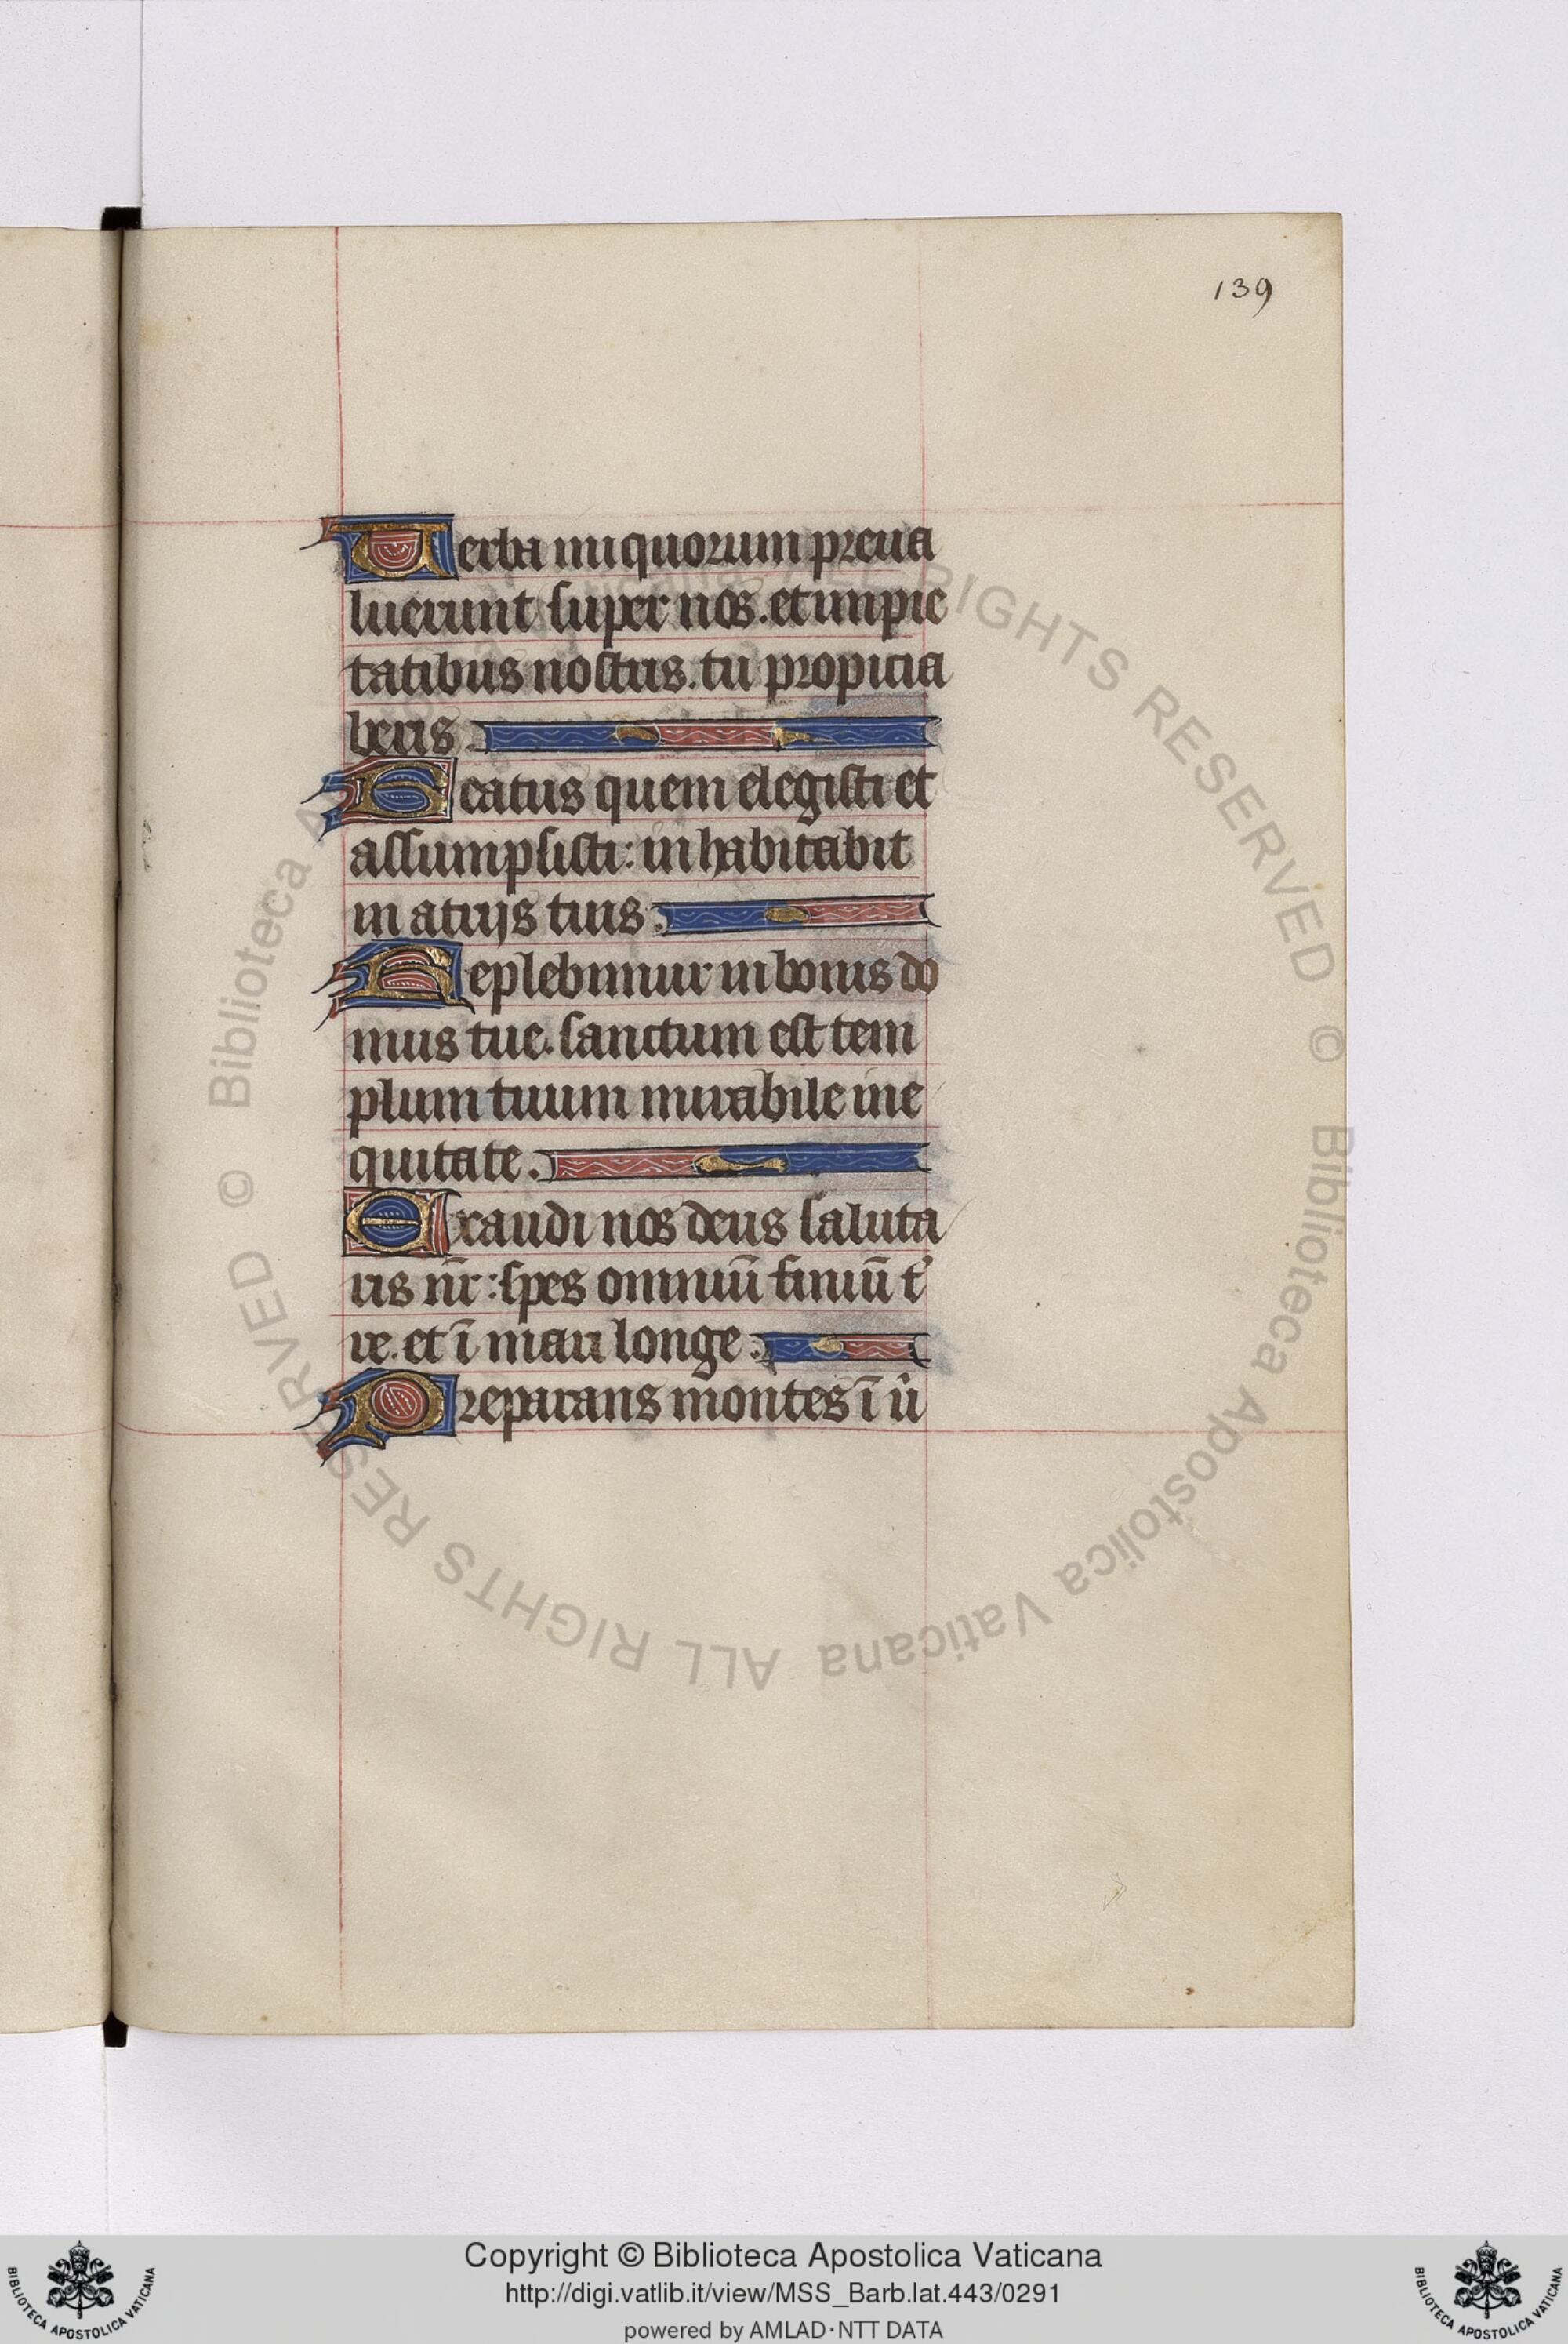 139
Uerba iniquorum preua
luerunt super nos. et impie
tatibus nostris. tu propicia
beris
Beatus quem elegisti et
assumpsisti: inhabitabit
in atrijs tuis.
Replebimur in bonis do
mus tue. sanctum est tem
plum tuum mirabile in e
quitate.
Exaudi nos deus saluta
ris nr̄: spes omniū finiū t᷑
re. et ī mari longe.
Preparans montes ī ū
© Biblioteca Apostolica Vaticana ALL RIGHTS RESERVED © Biblioteca Apostolica Vaticana ALL RIGHTS RESERVED
Copyright © Biblioteca Apostolica Vaticana
http://digi.vatlib.it/view/MSS_Barb.lat.443/0291
powered by AMLAD·NTT DATA
BIBLIOTECA APOSTOLICA VATICANA
BIBLIOTECA APOSTOLICA VATICANA